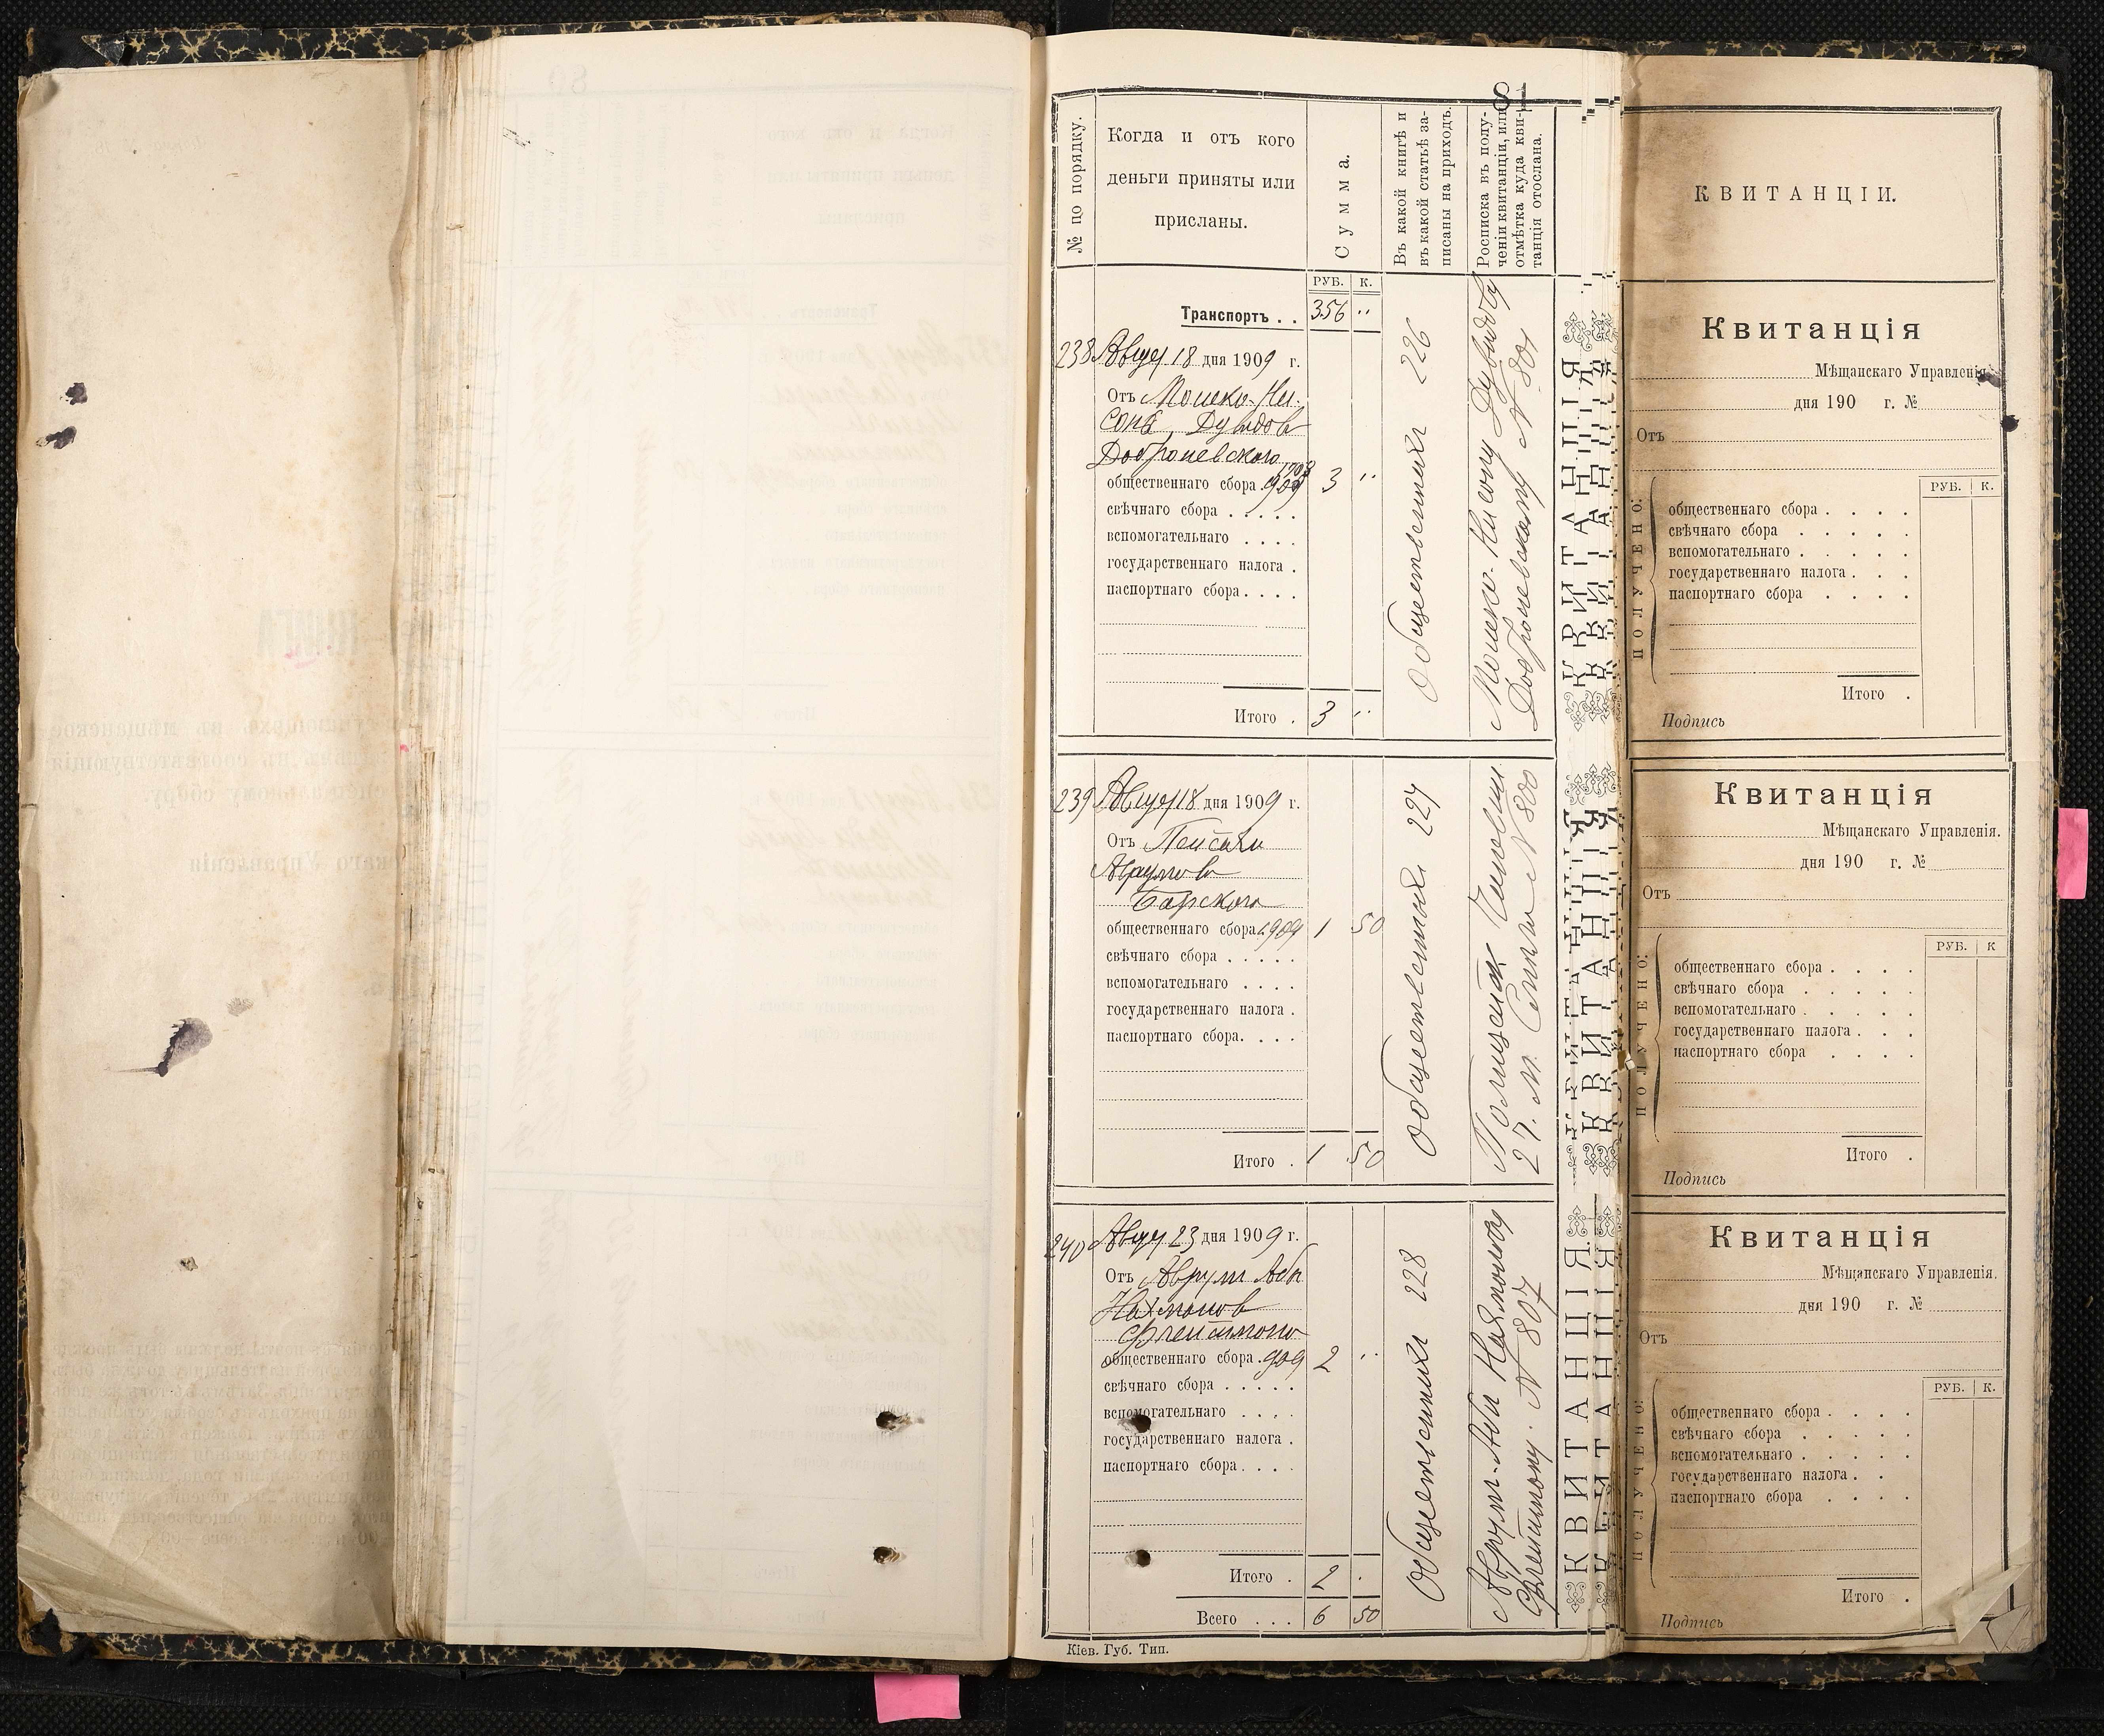 № по порядку.
Когда и отъ кого
деньги приняты или
присланы.
Сумма.
Въ какой книгѣ и
въ какой статьѣ за-
писаны на приходъ.
Росписка въ полу-
ченіи квитанціи, или
отмѣтка куда кви-
танція отослана.
РУБ. К.
Транспортъ . . 356 "
238 Авгус 18 дня 1909 г.
Отъ Мошко-Ни-
сонъ Дувидовъ
общественнаго сбора 909 3 "
свѣчнаго сбора . . . . .
вспомогательнаго . . . .
государственнаго налога .
паспортнаго сбора . . . .
Итого . 3 "
Общественная 226
Мошко-Нисону Дувидову
№ 801
239 Август 18 дня 1909 г.
Отъ Пейсаха
Аврумова
Барскаго
общественнаго сбора 1909 1 50
свѣчнаго сбора . . . . .
вспомогательнаго . . . .
государственнаго налога .
паспортнаго сбора. . . .
Итого . 1 50
Общественная 227
№ 800
240 Авгус 23 дня 1909 г.
Отъ Аврум Аба
Нахманов
Флейтмана
общественнаго сбора . 909 2 "
свѣчнаго сбора . . . . .
вспомогательнаго . . . .
государственнаго налога .
паспортнаго сбора . . . .
Итого . 2
Всего . . . 6 50
Общественная 228
Аврум-Аба Нахманову
Флейтману. № 807
Кіев. Губ. Тип.
КВИТАНЦІЯ
КВИТАНЦІЯ
КВИТАНЦІЯ
КВИТАНЦІИ.
Квитанція
Мѣщанскаго Управленія.
дня 190 г. №
Отъ
РУБ. К.
ПОЛУЧЕНО:
общественнаго сбора . . . .
свѣчнаго сбора . . . . .
вспомогательнаго . . . . .
государственнаго налога . . .
паспортнаго сбора . . . .
Итого .
Подпись
Квитанція
Мѣщанскаго Управленія.
дня 190 г. №
Отъ
РУБ. К
ПОЛУЧЕНО:
общественнаго сбора . . . .
свѣчнаго сбора . . . . .
вспомогательнаго . . . . .
государственнаго налога . . .
паспортнаго сбора . . . .
Итого .
Подпись
Квитанція
Мѣщанскаго Управленія.
дня 190 г. №
Отъ
РУБ. К.
ПОЛУЧЕНО:
общественнаго сбора . . . .
свѣчнаго сбора . . . . .
вспомогательнаго . . . . .
государственнаго налога . . .
паспортнаго сбора . . . .
Итого .
Подпись